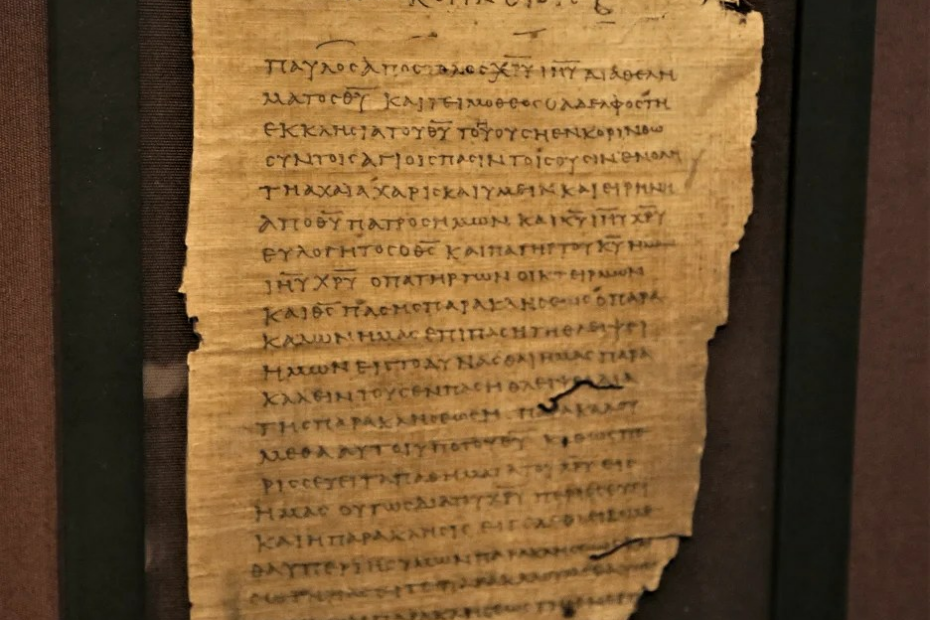 ΠΑΥΛΟΣ ΑΠΟΣΤΟΛΟΣ ΧΡΥ ΙΗΥ ΔΙΑ ΘΕΛΗ
ΜΑΤΟΣ ΘΥ ΚΑΙ ΤΕΙΜΟΘΕΟΣ Ο ΑΔΕΛΦΟΣ ΤΗ
ΕΚΚΛΗΣΙΑ ΤΟΥ ΘΥ ΤΟΥ ΟΥΣΗ ΕΝ ΚΟΡΙΝΘΩ
ΣΥΝ ΤΟΙΣ ΑΓΙΟΙΣ ΠΑΣΙΝ ΤΟΙΣ ΟΥΣΙΝ ΕΝ ΟΛΗ
ΤΗ ΑΧΑΙΑ ΧΑΡΙΣ ΚΑΙ ΥΜΕΙΝ ΚΑΙ ΕΙΡΗΝΗ
ΑΠΟ ΘΥ ΠΑΤΡΟΣ ΗΜΩΝ ΚΑΙ ΚΥ ΙΗΥ ΧΡΥ
ΕΥΛΟΓΗΤΟΣ Ο ΘΣ ΚΑΙ ΠΑΤΗΡ ΤΟΥ ΚΥ ΗΜΩ
ΙΗΥ ΧΡΥ Ο ΠΑΤΗΡ ΤΩΝ ΟΙΚΤΕΙΡΜΩΝ
ΚΑΙ ΘΣ ΠΑΣΗΣ ΠΑΡΑΚΛΗΣΕΩΣ Ο ΠΑΡΑ
ΚΑΛΩΝ ΗΜΑΣ ΕΠΙ ΠΑΣΗ ΤΗ ΘΛΕΙΨΕΙ
ΗΜΩΝ ΕΙΣ ΤΟ ΔΥΝΑΣΘΑΙ ΗΜΑΣ ΠΑΡΑ
ΚΑΛΕΙΝ ΤΟΥΣ ΕΝ ΠΑΣΗ ΘΛΕΙΨΕΙ ΔΙΑ
ΤΗΣ ΠΑΡΑΚΛΗΣΕΩΣ Η ΠΑΡΑΚΑΛΟΥ
ΜΕΘΑ ΑΥΤΟΙ ΥΠΟ ΤΟΥ ΘΥ ΚΑΘΩΣ ΠΕ
ΡΙΣΣΕΥΕΙ ΤΑ ΠΑΘΗΜΑΤΑ ΤΟΥ ΧΡΥ ΕΙΣ
ΗΜΑΣ ΟΥΤΩΣ ΔΙΑ ΤΟΥ ΧΡΥ ΠΕΡΙΣΣΕΥΕΙ
ΚΑΙ Η ΠΑΡΑΚΛΗΣΙΣ ΕΙΤΕ ΔΕ ΘΛΕΙΒΟΜΕ
ΘΑ ΥΠΕΡ ΤΗΣ ΥΜΩΝ ΠΑΡΑΚΛΗΣΕΩΣ